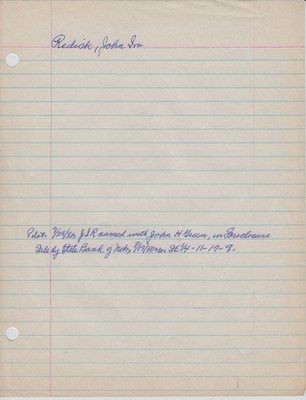 Redick, John Ira
J I R named with John H Green, in Foreclosure
Sale by State Bank of Nebr SE¼-11-17-9.